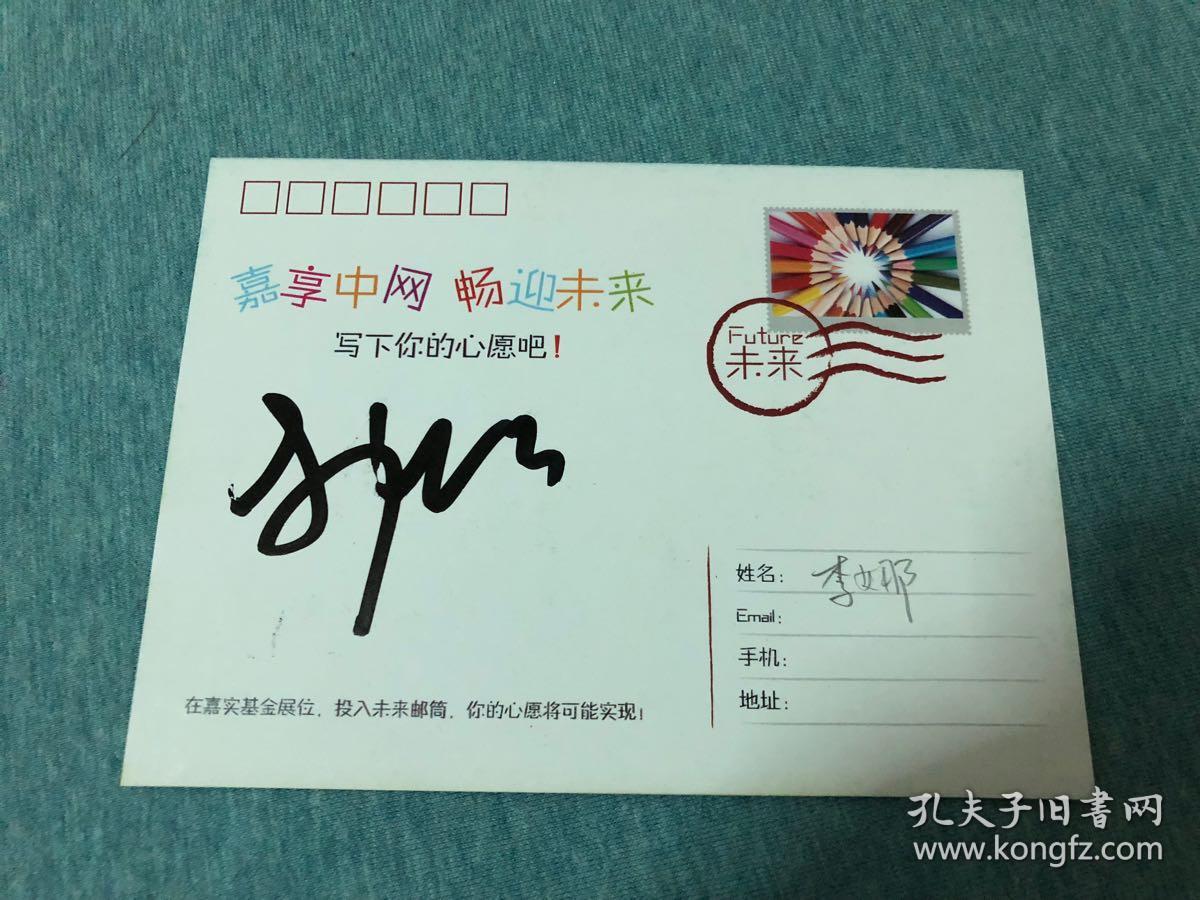 嘉享中网 畅迎未来
写下你的心愿吧!
Future
未来
姓名: 李娜
Email:
手机:
地址:
在嘉实基金展位, 投入未来邮筒, 你的心愿将可能实现!
孔夫子旧书网
www.kongfz.com